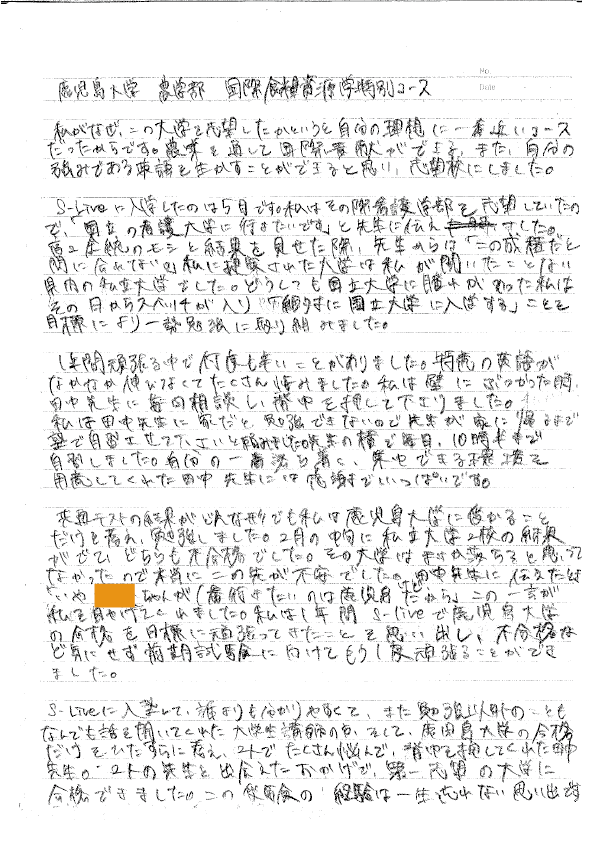 No.
Date
鹿児島大学 農学部 国際食料資源学特別コース
私がなぜ、この大学を志望したかというと自分の理想に一番近いコース
だったからです。農業を通して国際貢献ができる、また、自分の
強みである英語を生かすことができると思い、志望校にしました。
S-Liveに入学したのは5月です。私はその際看護学部を志望していたの
で、「国立の看護大学に行きたいです」と先生に伝えました。
高2 生統のモシと結果を見せた際、先生からは「この成績だと
間に合わない」私に提案された大学は私が聞いたことない
県内の私立大学でした。どうしても国立大学に
その日からスベッチが入り「絶対に国立大学に入学する」ことを
目標により一勢勉強に取り組みました。
1年間頑張る中で何度も辛いことがありました。特に の英語が
なかなか伸びなくてたくさん悩みました。私は壁にぶつかった時、
田中先生に毎回相談し背中を押して下さりました。
私は田中先生に家だと、勉強できないので先生が家に帰るまで
塾で自習させて下さいと頼みました。先生の横で毎日、10時半まで
自習しました。自分の一番 集中できる環境を
用意してくれた田中先生には感謝でいっぱいです。
共通テストの結果がどんな形でも私は鹿児島大学に受かること
だけを考え、勉強しました。2月の中旬に私立大学2校の結果
がでて、どちらも不合格でした。その大学はまさか落ちると思って
なかったので本当にこの先が不安でした。田中先生に伝えたとき
「いや ちゃんが1番行きたいのは鹿児島だから」この言が
私を助けてくれました。私は1年間 S-liveで鹿児島大学
の合格を目標に頑張ってきたことを思い出し、不合格な
ど気にせず前期試験に向けてもう1度頑張ることができ
ました。
S-Liveに入塾して、誰よりも分かりやすくて、また勉強以外のことも
なんでも話を聞いてくれた大学生講師の方、そして、鹿児島大学の合格
だけをひたすらに考え、2人でたくさん悩んで、背中を押してくれた田中
先生。2人の先生と出会えたおかげで、第一志望の大学に
合格できました。この受験の経験は一生忘れない思い出です